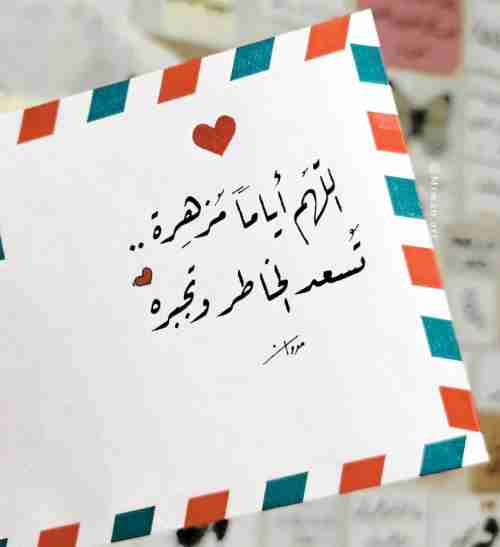 اللّهُم أياماً مُزهِرة ..
تُسعد الخاطر وتجبره
مروان